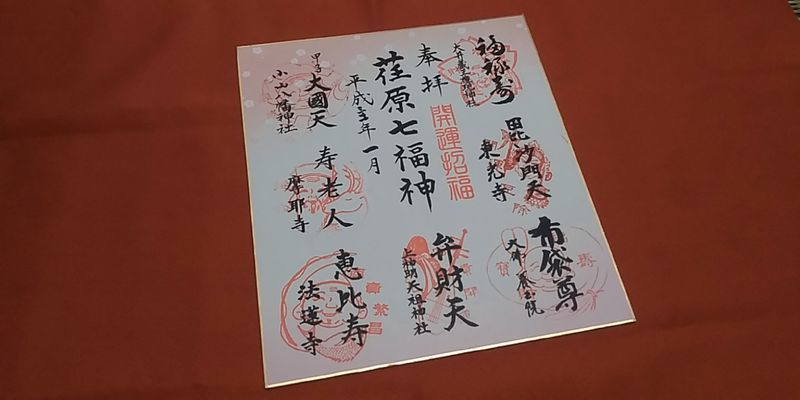 福禄寿
大井蔵王権現神社
毘沙門天
東光寺
布袋尊
大井 養玉院
奉拝
荏原七福神
平成 年 一月
開運招福
弁財天
上神明天祖神社
甲子
大國天
小山八幡神社
寿老人
摩耶寺
恵比寿
法蓮寺
繁昌